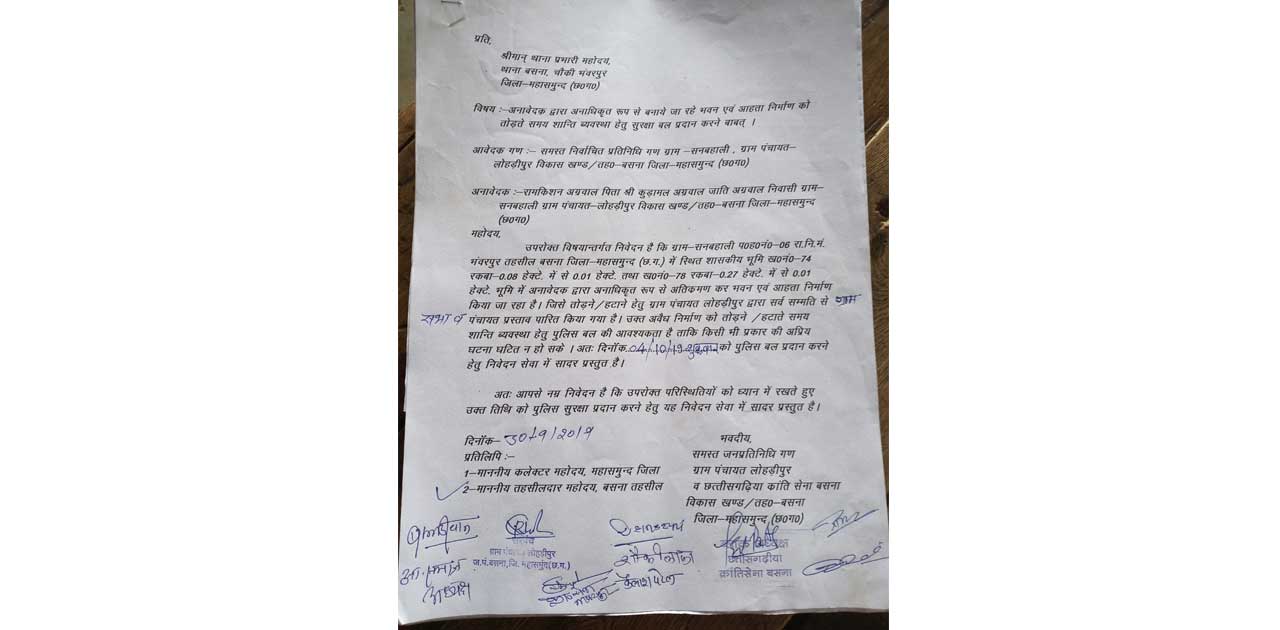 प्रति,
श्रीमान् थाना प्रभारी महोदय,
थाना बसना, चौकी भंवरपुर
जिला–महासमुन्द (छ०ग०)
विषय :–अनावेदक द्वारा अनाधिकृत रूप से बनाये जा रहे भवन एवं आहता निर्माण को
तोड़ते समय शान्ति व्यवस्था हेतु सुरक्षा बल प्रदान करने बाबत् ।
आवेदक गण :– समस्त निर्वाचित प्रतिनिधि गण ग्राम –सनबहाली , ग्राम पंचायत–
लोहड़ीपुर विकास खण्ड/तह०–बसना जिला–महासमुन्द (छ०ग०)
अनावेदक :–रामकिशन अग्रवाल पिता श्री कुड़ामल अग्रवाल जाति अग्रवाल निवासी ग्राम–
सनबहाली ग्राम पंचायत–लोहड़ीपुर विकास खण्ड/तह०–बसना जिला–महासमुन्द
(छ०ग०)
महोदय,
उपरोक्त विषयान्तर्गत निवेदन है कि ग्राम–सनबहाली प०ह०नं०–06 रा.नि.मं.
भंवरपुर तहसील बसना जिला–महासमुन्द (छ.ग.) में स्थित शासकीय भूमि ख०नं०–74
रकबा–0.08 हेक्टे. में से 0.01 हेक्टे. तथा ख०नं०–78 रकबा–0.27 हेक्टे. में से 0.01
हेक्टे. भूमि में अनावेदक द्वारा अनाधिकृत रूप से अतिक्रमण कर भवन एवं आहता निर्माण
किया जा रहा है। जिसे तोड़ने/हटाने हेतु ग्राम पंचायत लोहड़ीपुर द्वारा सर्व सम्मति से ग्राम
सभा व पंचायत प्रस्ताव पारित किया गया है। उक्त अवैध निर्माण को तोड़ने /हटाते समय
शान्ति व्यवस्था हेतु पुलिस बल की आवश्यकता है ताकि किसी भी प्रकार की अप्रिय
घटना घटित न हो सके । अतः दिनॉक 04/10/19 शुक्रवार को पुलिस बल प्रदान करने
हेतु निवेदन सेवा में सादर प्रस्तुत है।
अतः आपसे नम्र निवेदन है कि उपरोक्त परिस्थितियों को ध्यान में रखते हुए
उक्त तिथि को पुलिस सुरक्षा प्रदान करने हेतु यह निवेदन सेवा में सादर प्रस्तुत है।
दिनॉक– 30/9/2019
भवदीय,
प्रतिलिपि :–
समस्त जनप्रतिनिधि गण
1–माननीय कलेक्टर महोदय, महासमुन्द जिला
ग्राम पंचायत लोहड़ीपुर
2–माननीय तहसीलदार महोदय, बसना तहसील
व छत्तीसगढ़िया कांति सेना बसना
विकास खण्ड/तह०–बसना
जिला–महासमुन्द (छ०ग०)
सरपंच
ग्राम पंचायत लोहड़ीपुर
ज.पं.बसना,जि. महासमुंद(छ.ग.)
अध्यक्ष
छत्तीसगढ़ीया
क्रांतिसेना बसना
कैलाश पटेल
अध्यक्ष